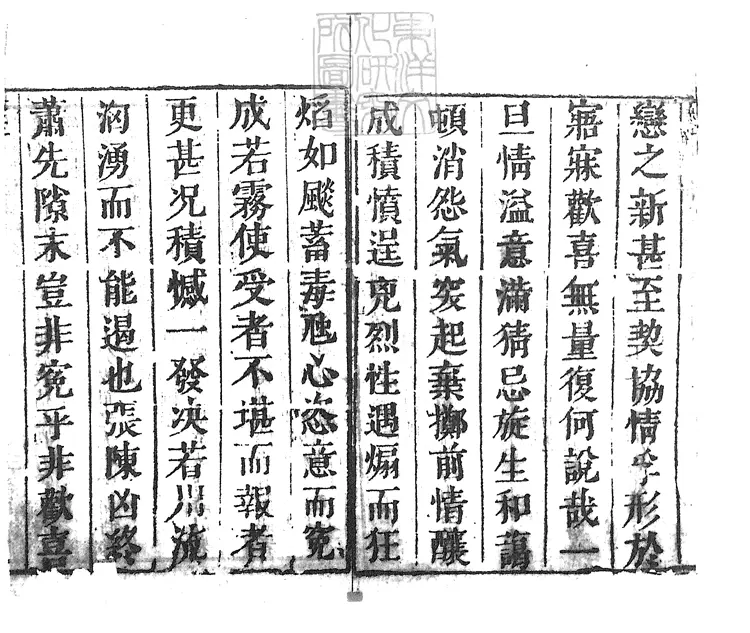 戀之新甚至契協情孚形於
寤寐歡喜無量復何說哉一
旦情溢意滿猜忌旋生和藹
頓消怨氣突起棄擲前情釀
成積憤逞兇烈性遇煽而狂
焰如飈蓄毒虺心恣意而寃
成若霧使受者不堪而報者
更甚况積憾一發决若川流
洶湧而不能遏也張陳凶終
蕭先隙末豈非寃乎非歡喜